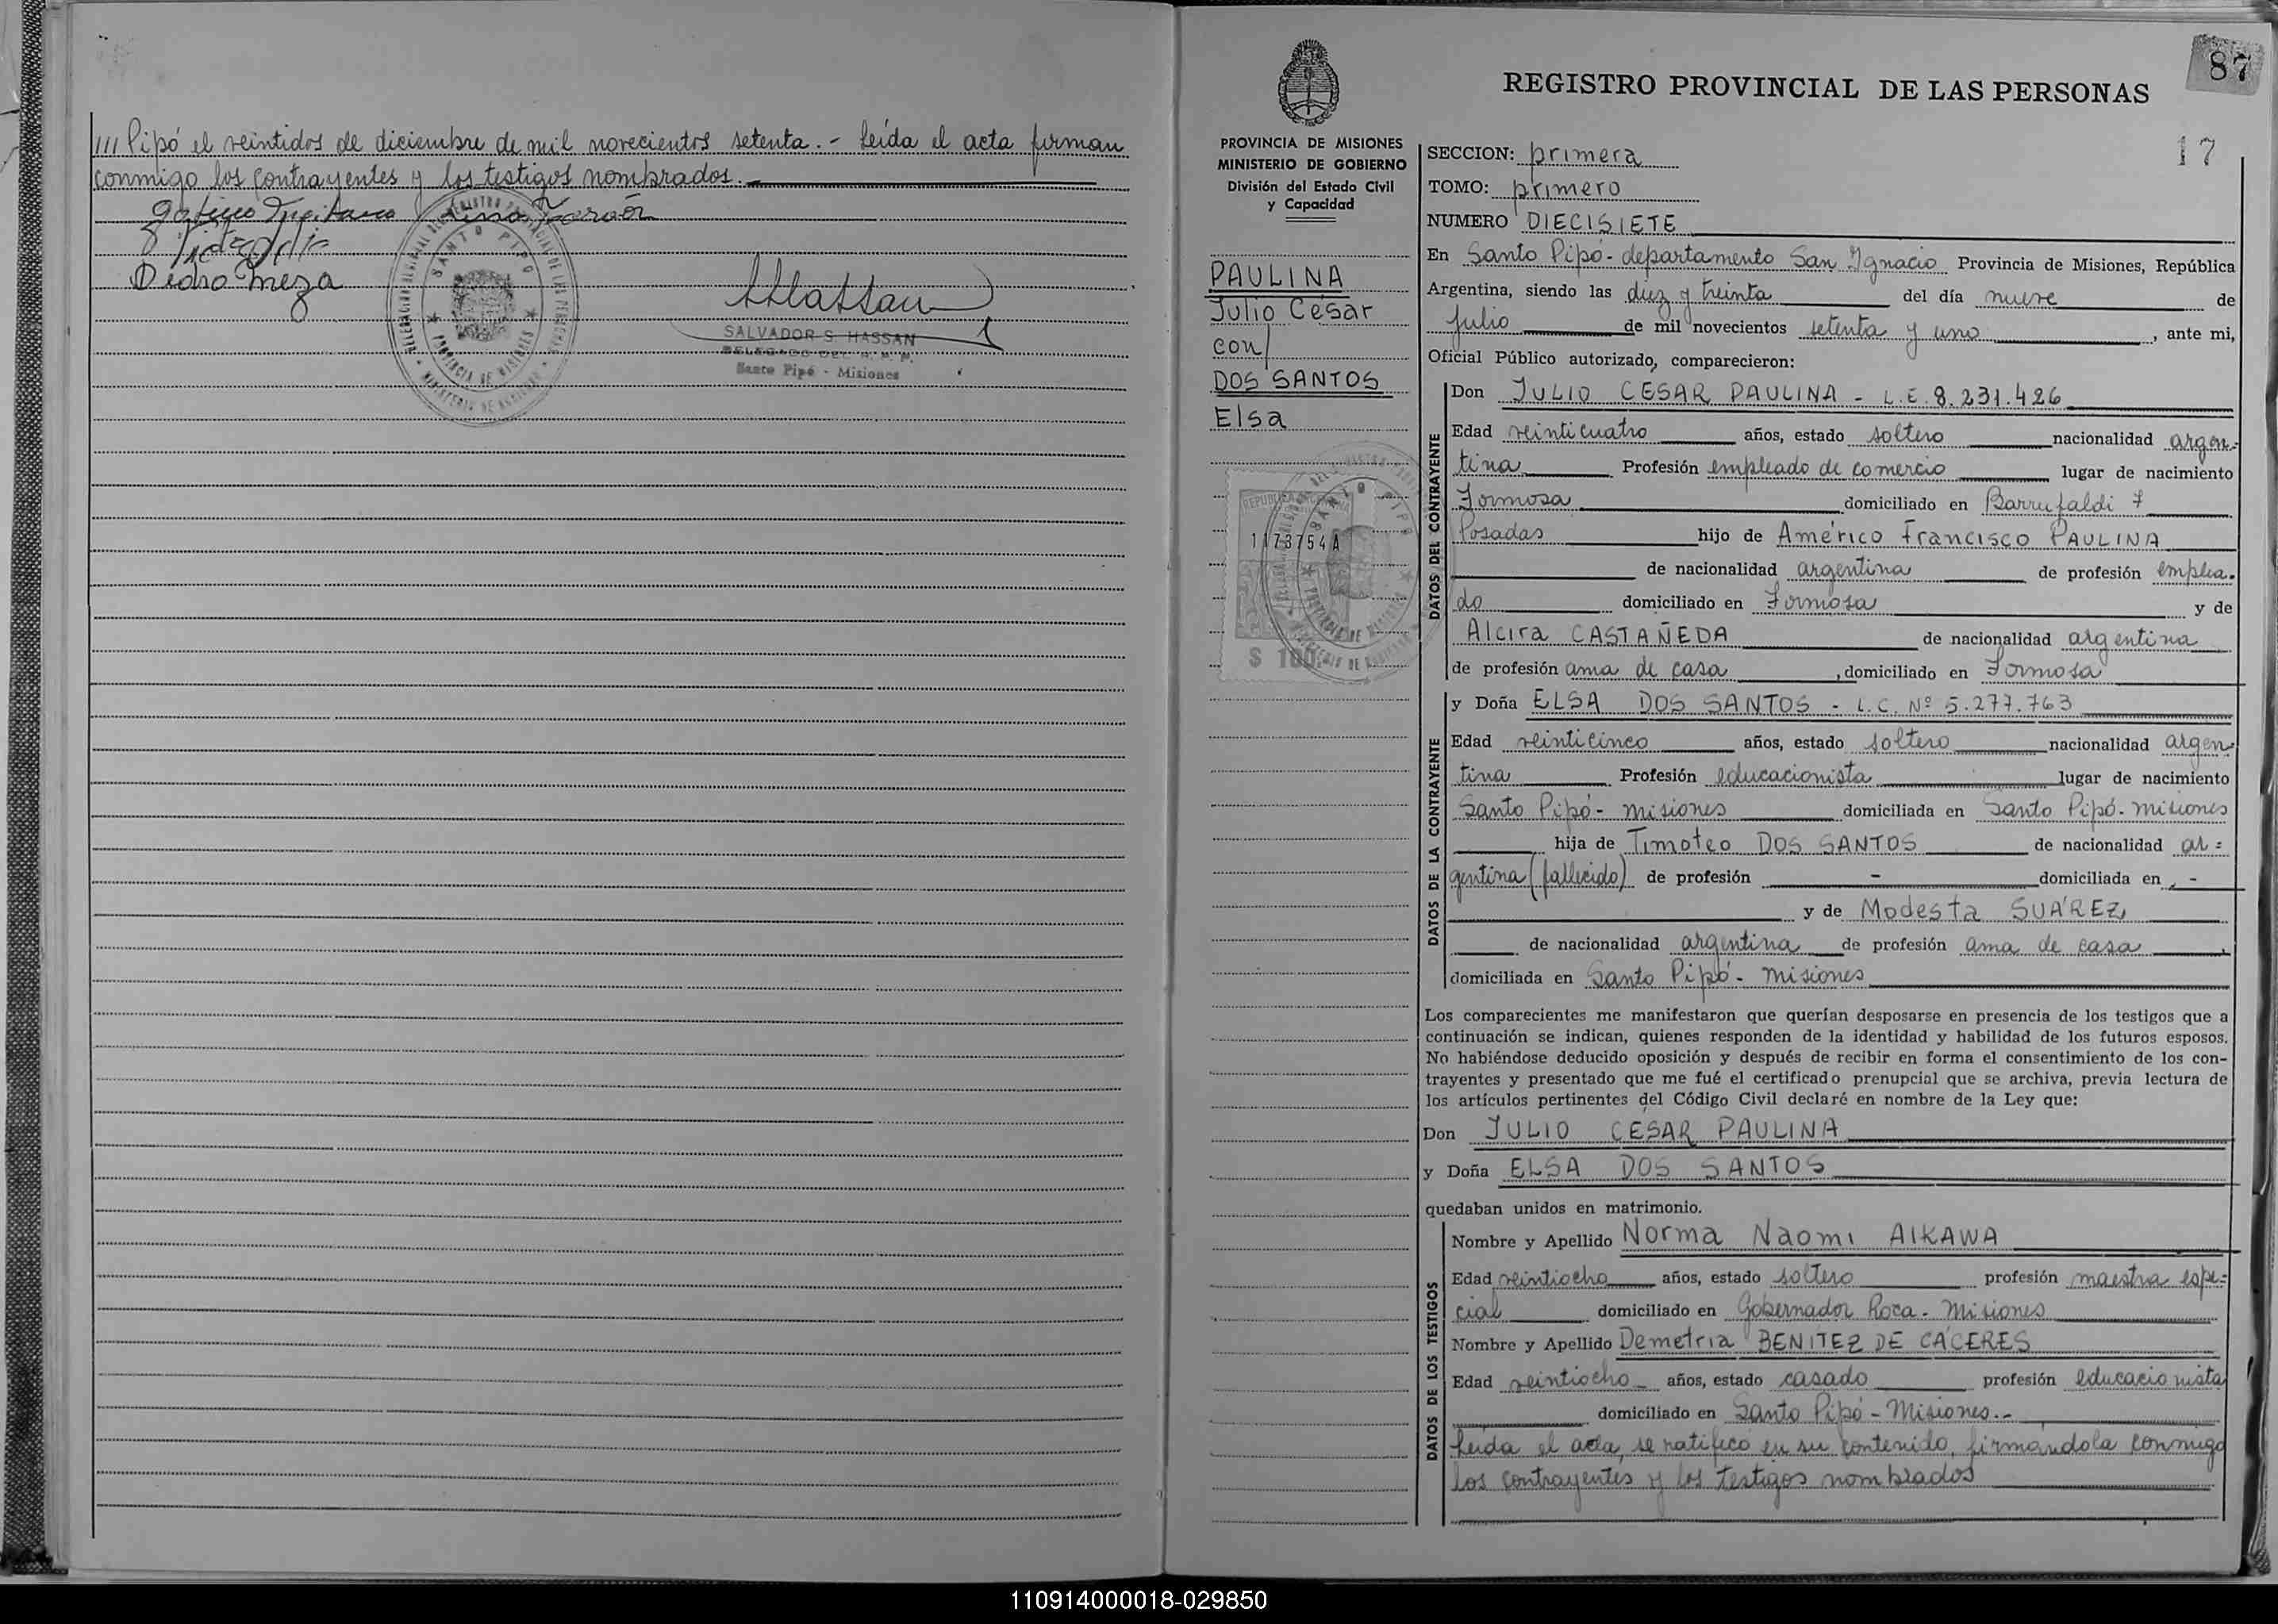 /// Pipó el veintidos de diciembre de mil novecientos setenta.- Leída el acta firman
conmigo los contrayentes y los testigos nombrados.
Pedro Meza
SANTO PIPO
PROVINCIA DE MISIONES
SALVADOR S. HASSAN
DELEGADO DEL R. P. P.
Santo Pipó - Misiones
87
REGISTRO PROVINCIAL DE LAS PERSONAS
17
PROVINCIA DE MISIONES
MINISTERIO DE GOBIERNO
División del Estado Civil
y Capacidad
PAULINA
Julio César
con/
DOS SANTOS
Elsa
REPUBLICA
1173754A
$ 100
SECCION: primera
TOMO: primero
NUMERO DIECISIETE
En Santo Pipó- departamento San Ignacio Provincia de Misiones, República
Argentina, siendo las diez y treinta del día nueve de
Julio de mil novecientos setenta y uno, ante mi,
Oficial Público autorizado, comparecieron:
DATOS DEL CONTRAYENTE
Don JULIO CESAR PAULINA - L.E. 8.231.426
Edad veinticuatro años, estado soltero nacionalidad argen-
tina Profesión empleado de comercio lugar de nacimiento
Formosa domiciliado en Barrufaldi 7
Posadas hijo de Américo Francisco PAULINA
de nacionalidad argentina de profesión emplea-
do domiciliado en Formosa y de
Alcira CASTAÑEDA de nacionalidad argentina
de profesión ama de casa, domiciliado en Formosa
DATOS DE LA CONTRAYENTE
y Doña ELSA DOS SANTOS - L.C. Nº 5.277.763
Edad veinticinco años, estado soltero nacionalidad argen
tina Profesión educacionista lugar de nacimiento
Santo Pipó- Misiones domiciliada en Santo Pipó- Misiones
hija de Timoteo DOS SANTOS de nacionalidad ar=
gentina (fallecido) de profesión - domiciliada en -
y de Modesta SUÁREZ
de nacionalidad argentina de profesión ama de casa,
domiciliada en Santo Pipó- Misiones
Los comparecientes me manifestaron que querían desposarse en presencia de los testigos que a
continuación se indican, quienes responden de la identidad y habilidad de los futuros esposos.
No habiéndose deducido oposición y después de recibir en forma el consentimiento de los con-
trayentes y presentado que me fué el certificado prenupcial que se archiva, previa lectura de
los artículos pertinentes del Código Civil declaré en nombre de la Ley que:
Don JULIO CÉSAR PAULINA
y Doña ELSA DOS SANTOS
quedaban unidos en matrimonio.
DATOS DE LOS TESTIGOS
Nombre y Apellido Norma Naomi AIKAWA
Edad veintiocho años, estado soltero profesión maestra espe=
cial domiciliado en Gobernador Roca- Misiones
Nombre y Apellido Demetria BENITEZ DE CACERES
Edad veintiocho años, estado casado profesión educacionista
domiciliado en Santo Pipó - Misiones.-
Leída el acta, se ratificó en su contenido, firmándola conmigo
los contrayentes y los testigos nombrados
110914000018-029850